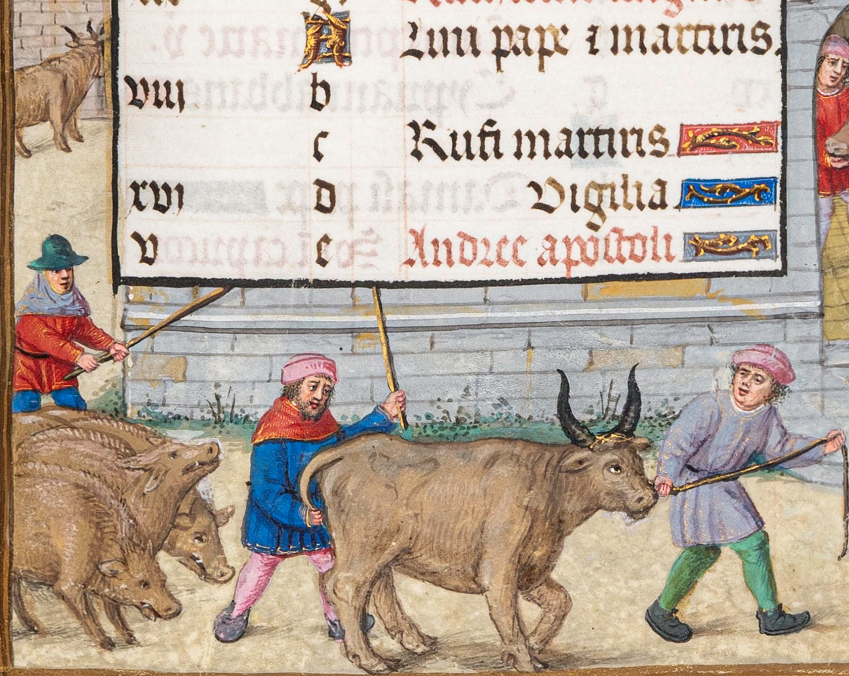 A Lini pape ⁊ martiris.
viij b
c Rufi martiris
xvj d Vigilia
v e Andree apostoli